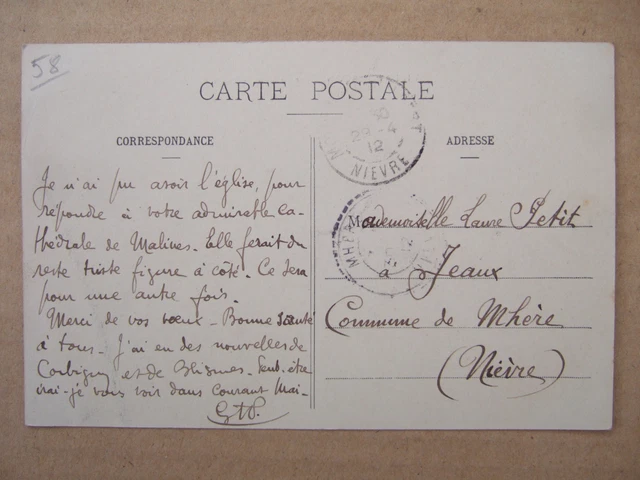 58
CARTE POSTALE
CORRESPONDANCE
Je n'ai pu avoir l'église, pour
répondre à votre admirable ca-
thédrale de Malines. Elle ferait du
reste triste figure à côté. Ce sera
pour une autre fois.
Merci de vos vœux - Bonne Santé
à tous - J'ai eu des nouvelles de
Corbigny et de Blismes. Peut-être
irai-je vous voir dans courant Mai-
ADRESSE
Mademoiselle Laure Petit
à Jeaux
Commune de Mhère
(Nièvre)
29 - 4
12
NIEVRE
MHERE